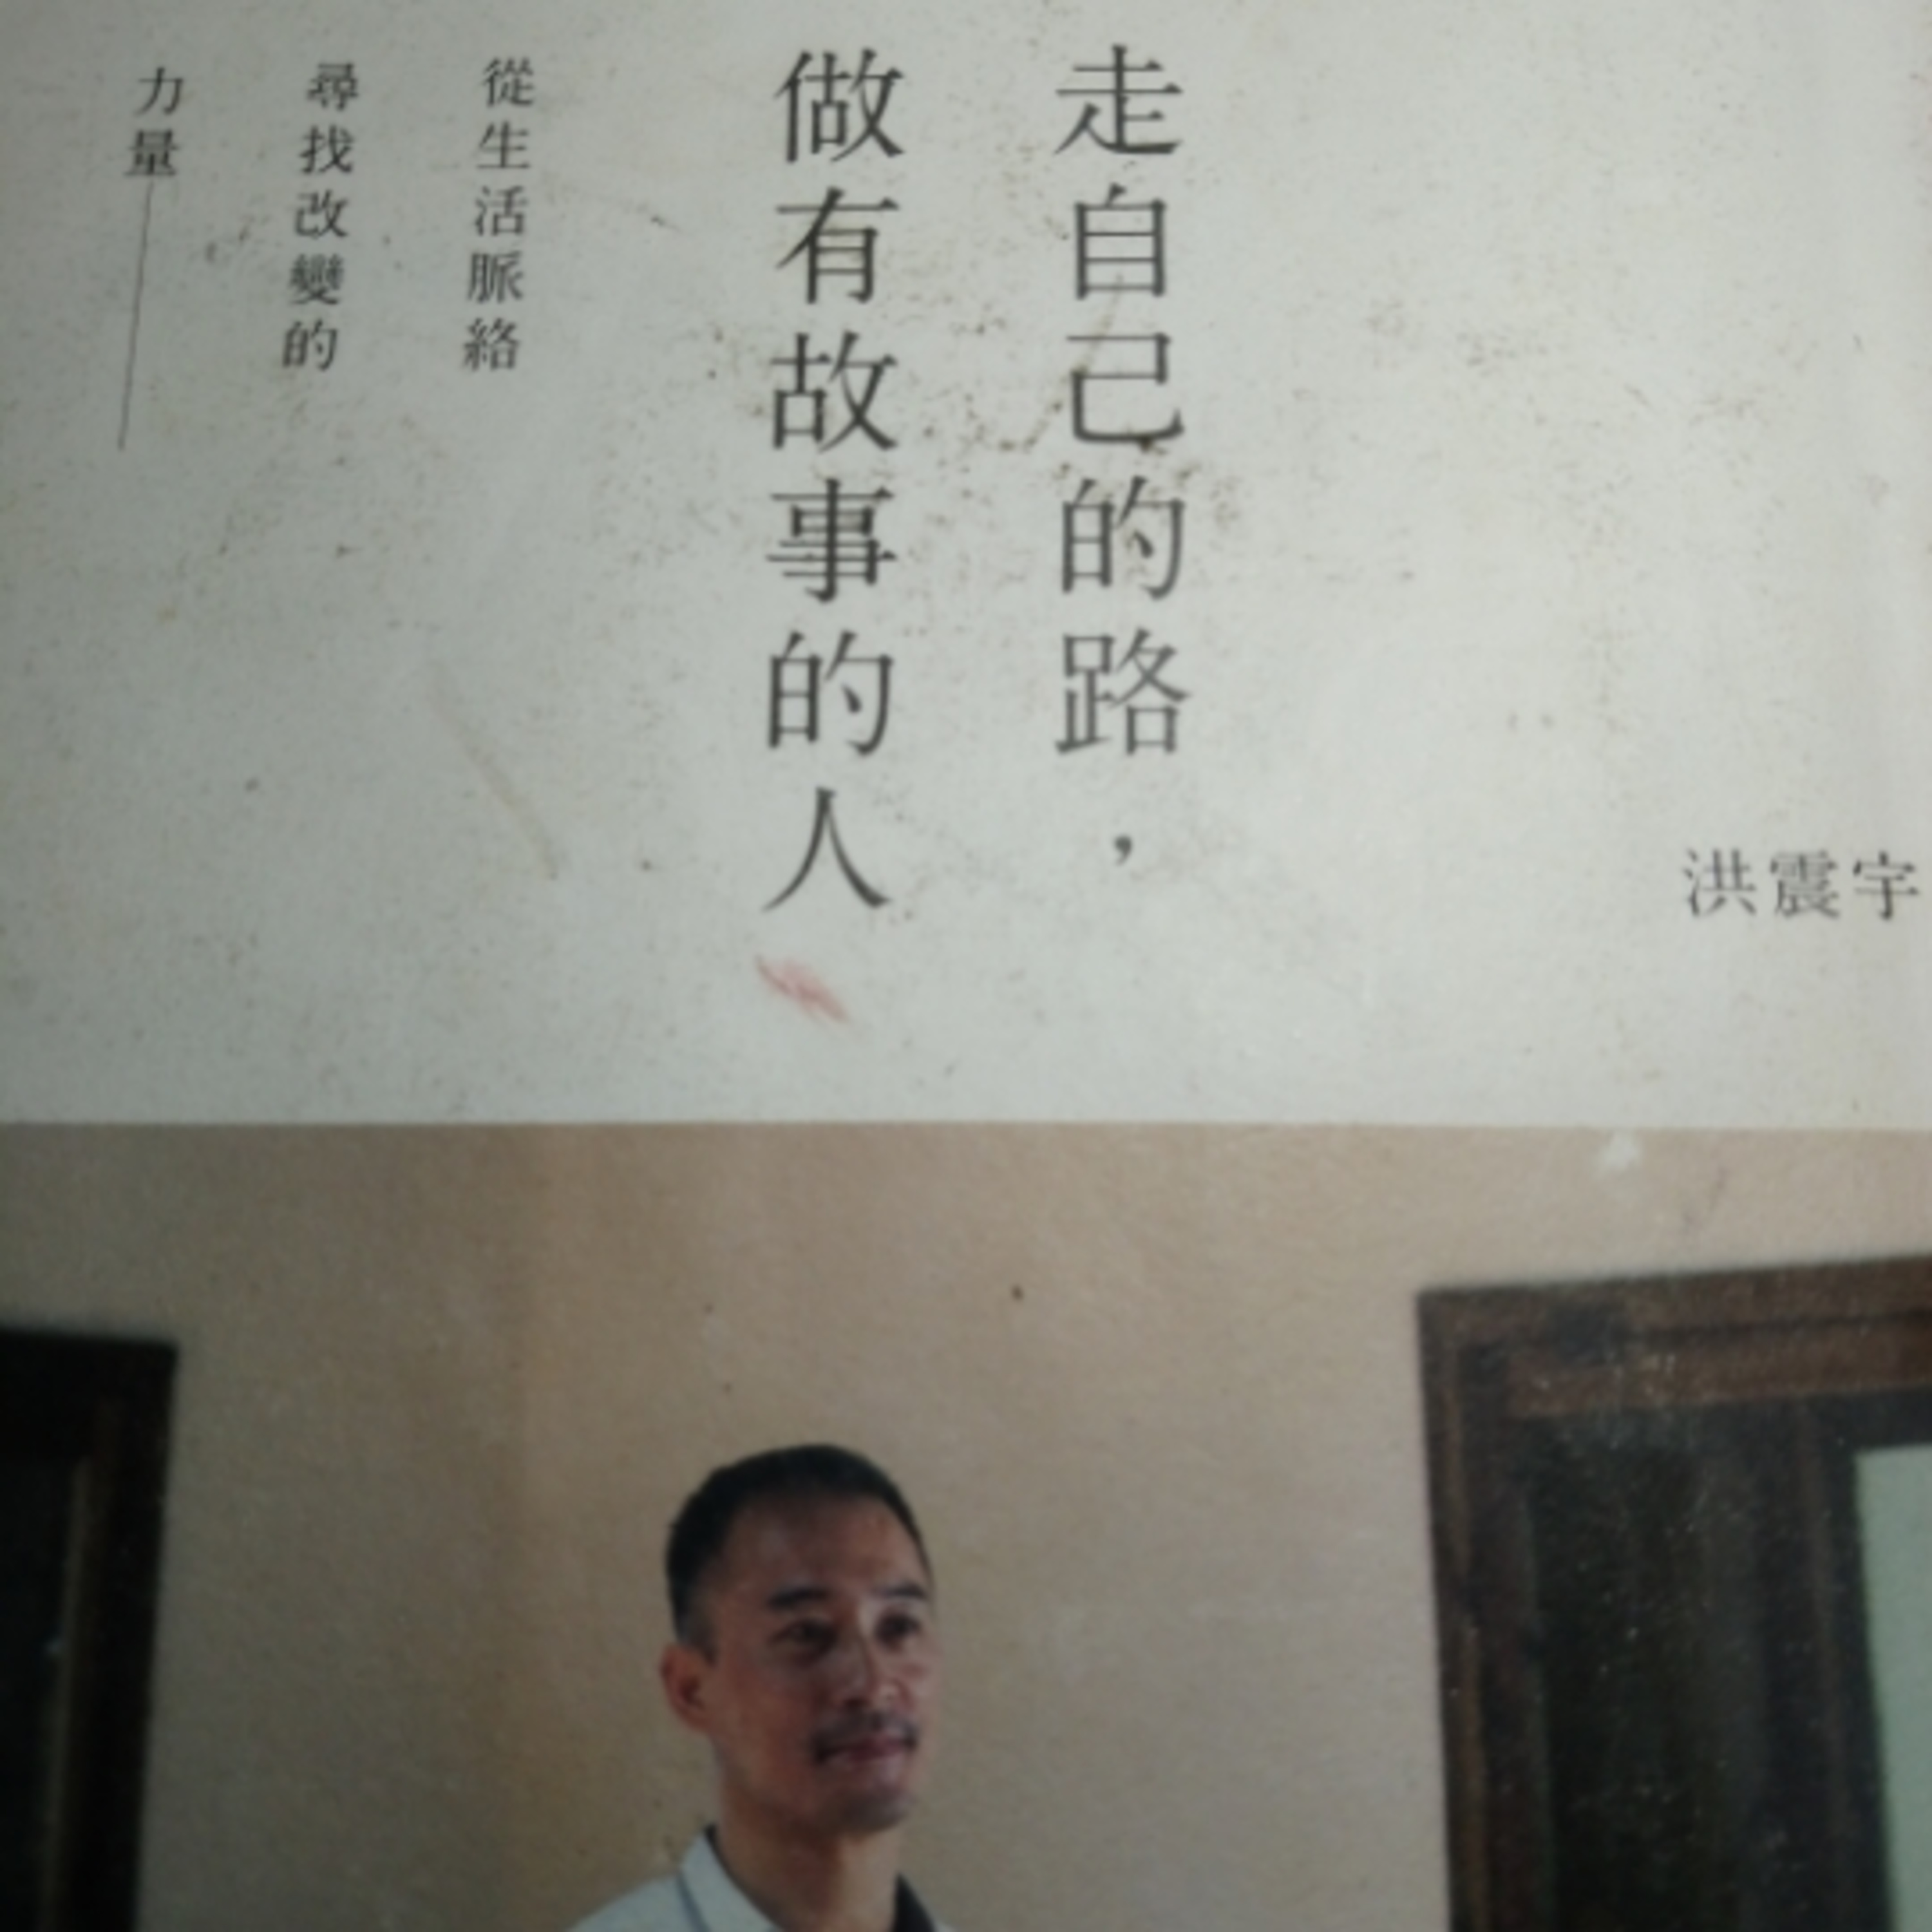 洪震宇
走自己的路，
做有故事的人
從生活脈絡
尋找改變的
力量──